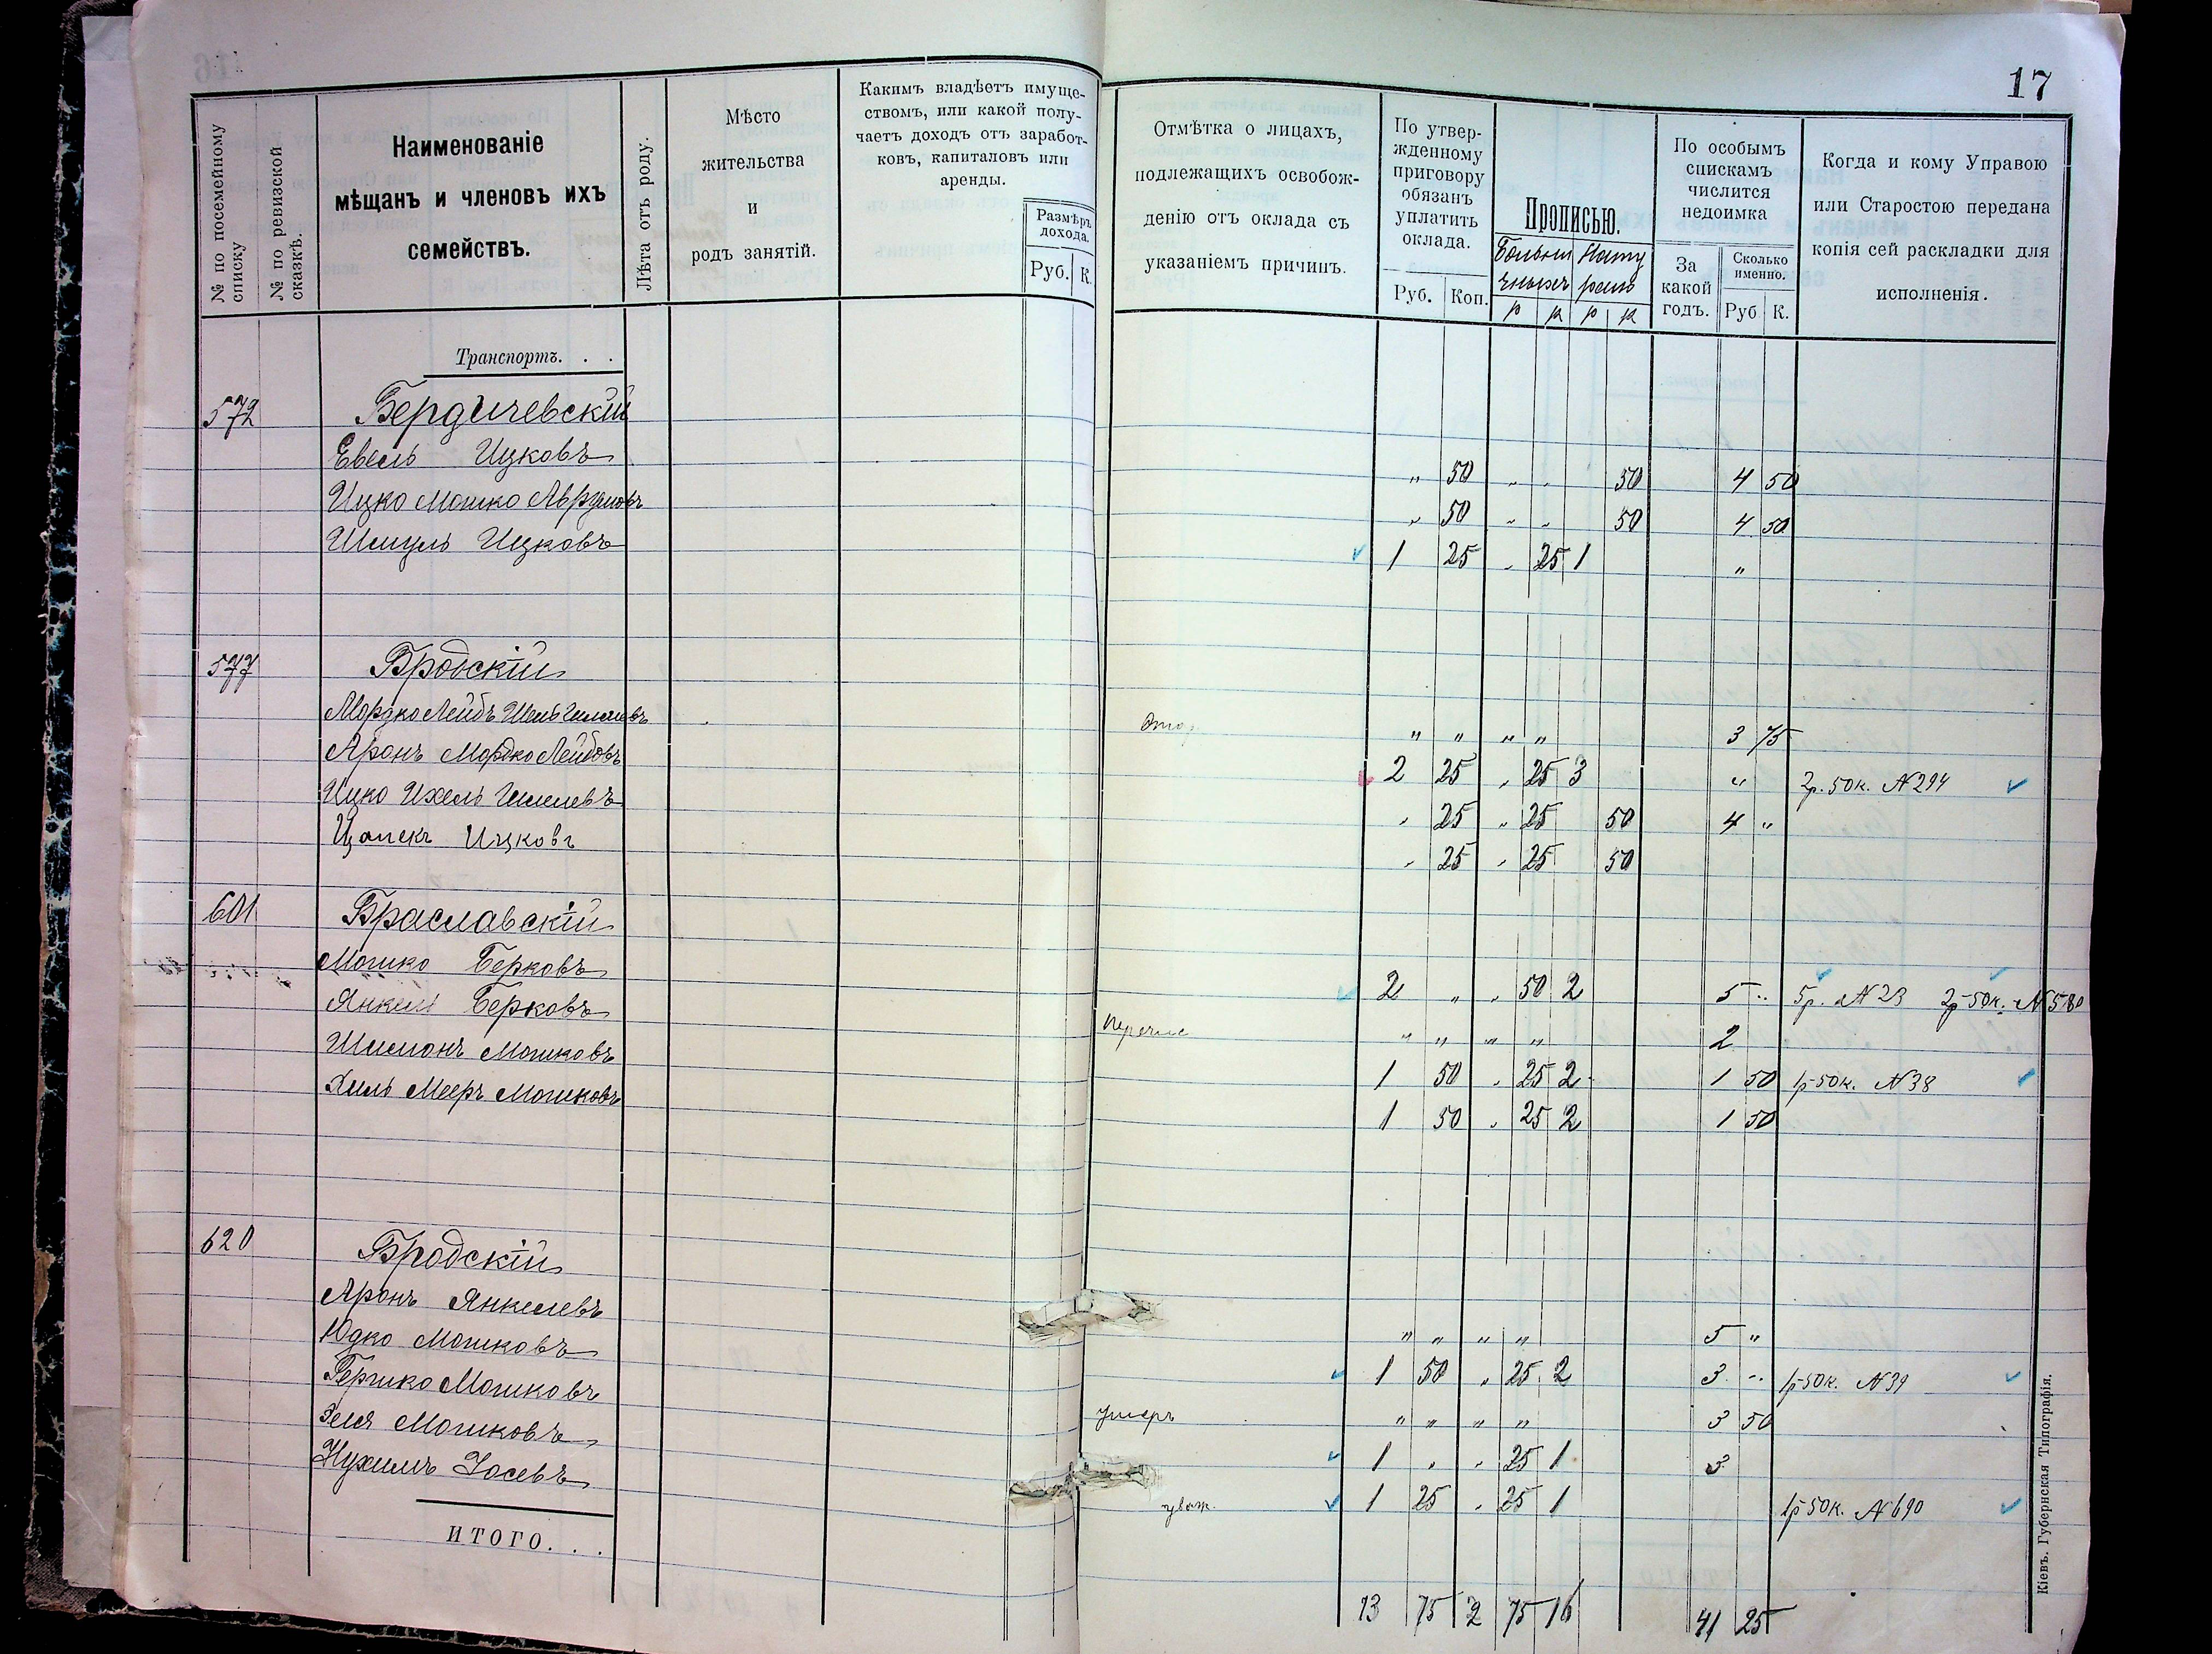 17
№ по посемейному списку
№ по ревизской сказкѣ.
Наименованіе
мѣщанъ и членовъ ихъ
семействъ.
Лѣта отъ роду.
Мѣсто
жительства
и
родъ занятій.
Какимъ владѣетъ имуще-
ствомъ, или какой полу-
чаетъ доходъ отъ заработ-
ковъ, капиталовъ или
аренды.
Размѣръ
дохода.
Руб. К.
Отмѣтка о лицахъ,
подлежащихъ освобож-
денію отъ оклада съ
указаніемъ причинъ.
По утвер-
жденному
приговору
обязанъ
уплатить
оклада.
Руб. Коп.
Прописью.
р к р к
По особымъ
спискамъ
числится
недоимка
За
какой
годъ.
Сколько
именно.
Руб К.
Когда и кому Управою
или Старостою передана
копія сей раскладки для
исполненія.
Транспортъ. . .
572 Бердичевскій
Евель Ицковъ " 50 " " 50 4 50
Ицко Мошко Аврумовъ " 50 " " 50 4 50
Шмуль Ицковъ 1 25 " 25 1 "
577 Бродскій
Мордко Лейбъ " " " " 3 75
Аронъ Мордко Лейбовъ 2 25 " 25 3 " 2р. 50к. №294
Ицко Ихель " 25 " 25 50 4 "
Ицковъ " 25 " 25 50
601 Браславскій
Мошко Берковъ 2 " " 50 2 5 " 5р. №23 2р 50к. №580
Янкель Берковъ перечис " " " " 2
Шимонъ Мошковъ 1 50 " 25 2 1 50 1р 50к. №38
Хиль Мееръ Мошковъ 1 50 " 25 2 1 50
620 Бродскій
Аронъ Янкелевъ " " " " 5 "
Юдко Мошковъ 1 50 " 25 2 3 " 1р 50к. №39
Гершко Мошковъ умеръ " " " " 3 50
Зеля Мошковъ 1 " " 25 1 3
Нухимъ Іосевъ 1 25 " 25 1 1р 50к. №690
ИТОГО. . .
13 75 2 75 16 41 25
Кіевъ. Губернская Типографія.